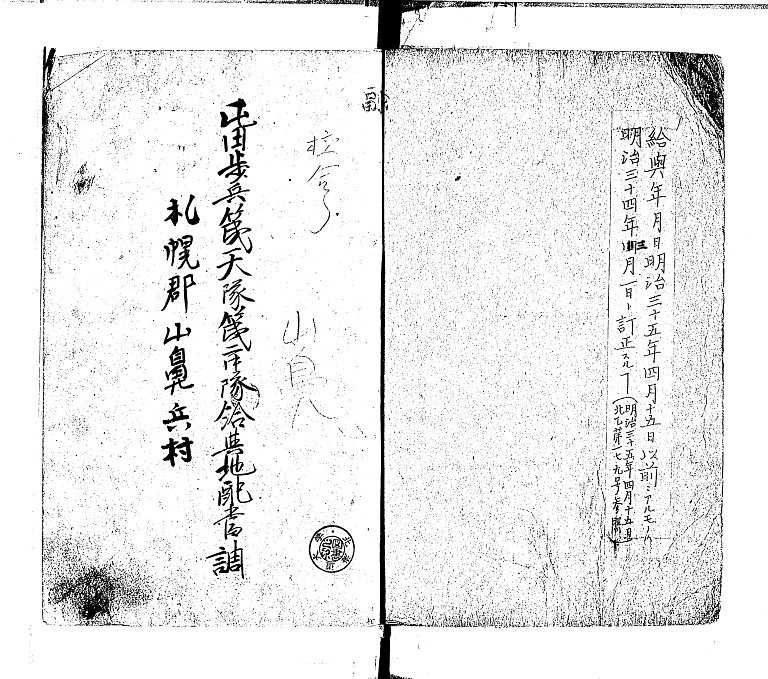 給與年月日明治三十五年四月十五日以前ニアルモノハ
明治三十四年三月一日ト訂正スルコト
(明治三十五年四月十五日
北乙第一七九号参照)
副
検合了
屯田歩兵第一大隊第二中隊給與地配當調
山鼻
札幌郡山鼻兵村